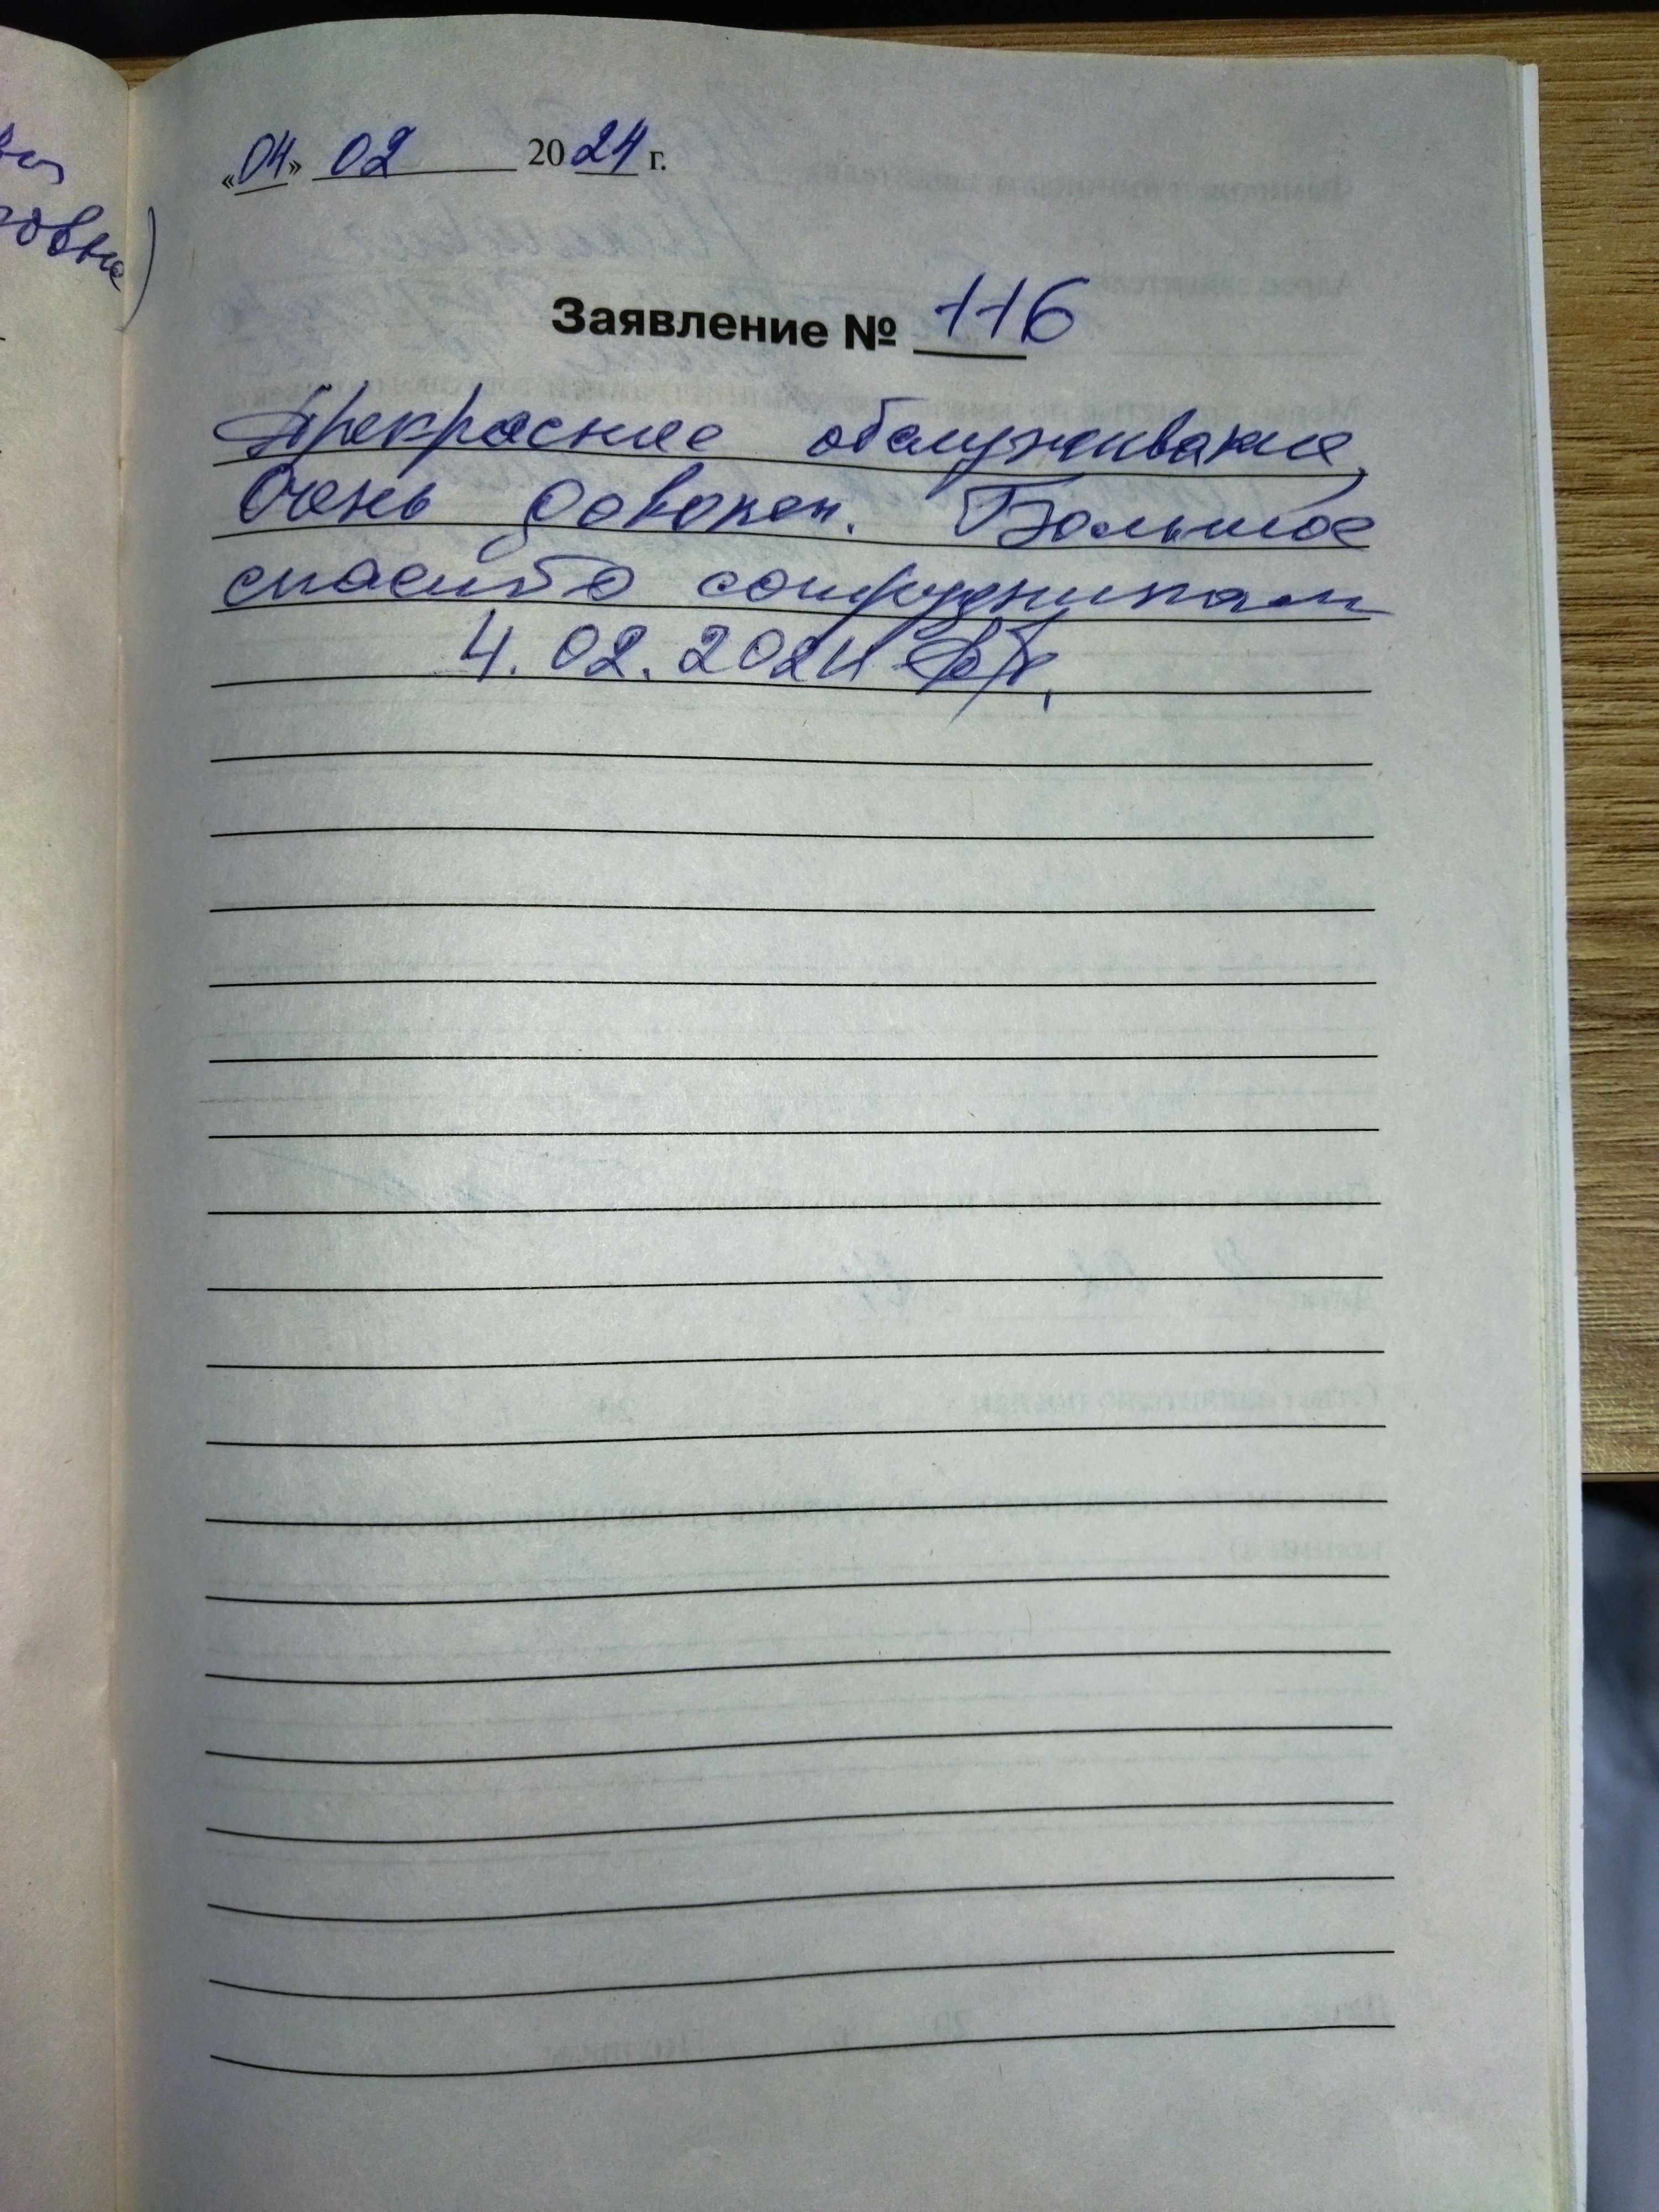 «04» 02 2024 г.
Заявление № 116
Прекрасное обслуживание,
Очень доволен. Большое
спасибо сотрудникам
4.02.2024